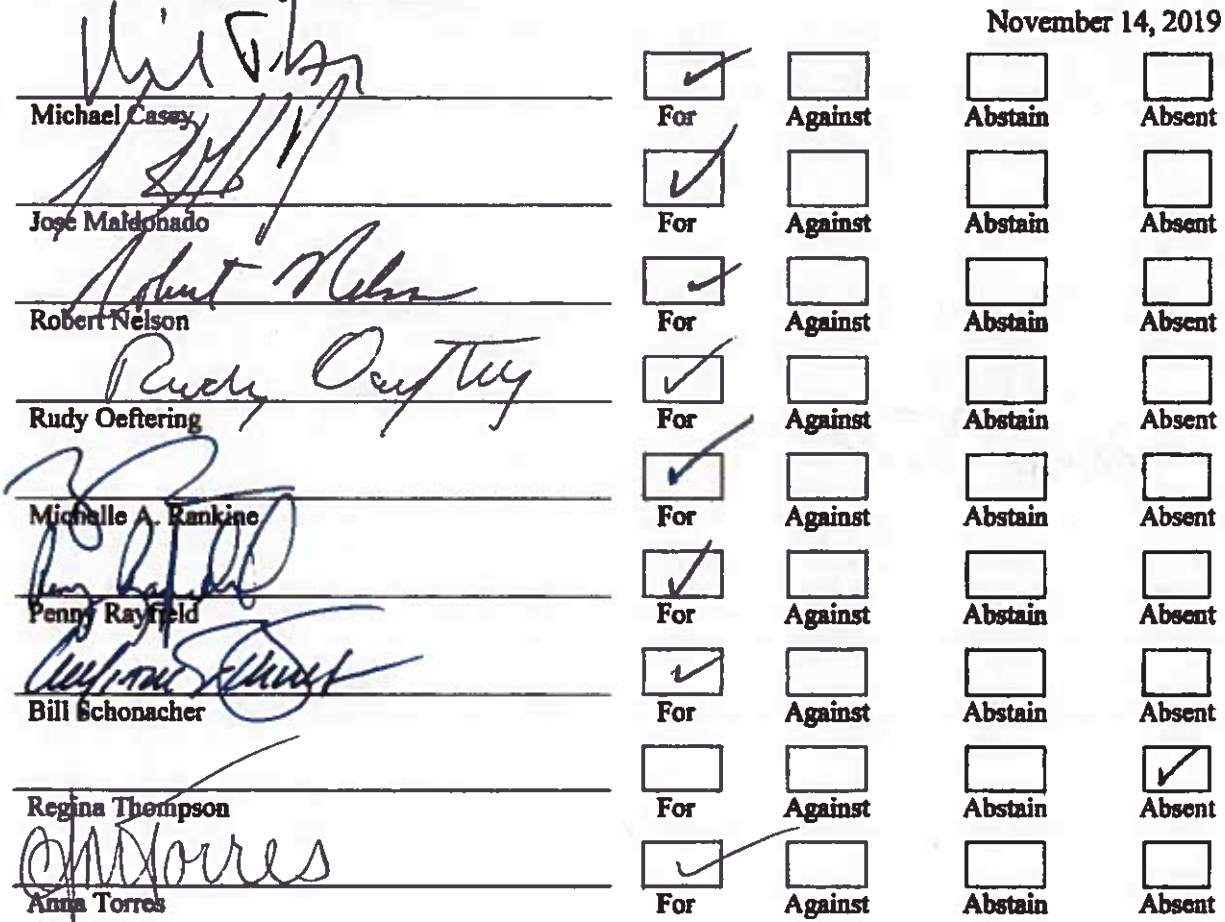 November 14, 2019
Michael Casey For Against Abstain Absent
Jose Maldonado For Against Abstain Absent
Robert Nelson
Robert Nelson For Against Abstain Absent
Rudy
Rudy Oeftering For Against Abstain Absent
Michelle A. Rankine For Against Abstain Absent
Penny Rayfield For Against Abstain Absent
Bill Schonacher For Against Abstain Absent
Regina Thompson For Against Abstain Absent
Torres
Anna Torres For Against Abstain Absent